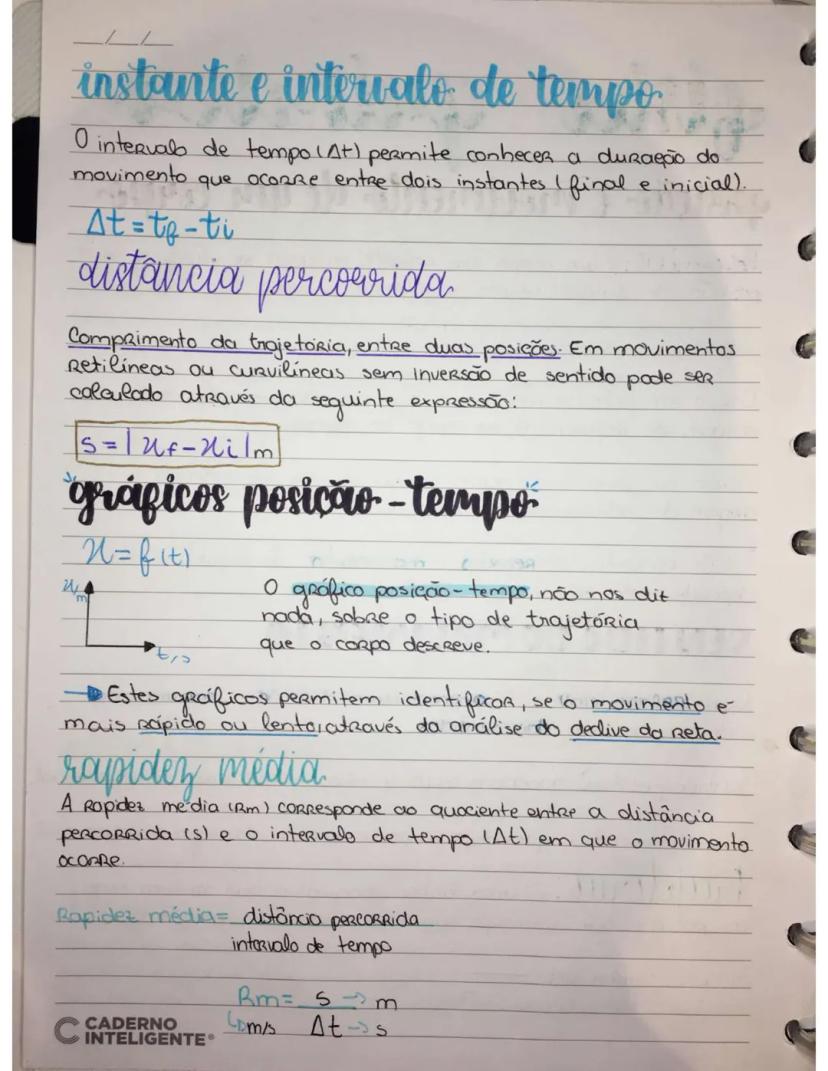 __/__/__
instante e intervalo de tempo
O intervalo de tempo (Δt) permite conhecer a duração do
movimento que ocorre entre dois instantes (final e inicial).
Δt = tf - ti
distância percorrida
Comprimento da trajetória, entre duas posições. Em movimentos
retilíneas ou curvilíneas sem inversão de sentido pode ser
calculado através da seguinte expressão:
s = |xf - xi| m
gráficos posição - tempo
x = f (t)
x, m
O gráfico posição - tempo, não nos dit
nada, sobre o tipo de trajetória
que o corpo descreve.
t, s
→ Estes gráficos permitem identificar, se o movimento é
mais rápido ou lento, através da análise do declive da reta.
rapidez média
A Rapidez média (Rm) corresponde ao quociente entre a distância
percorrida (s) e o intervalo de tempo (Δt) em que o movimento
ocorre.
Rapidez média = distância percorrida
intervalo de tempo
Rm = s → m
↳ m/s Δt → s
CADERNO
INTELIGENTE®